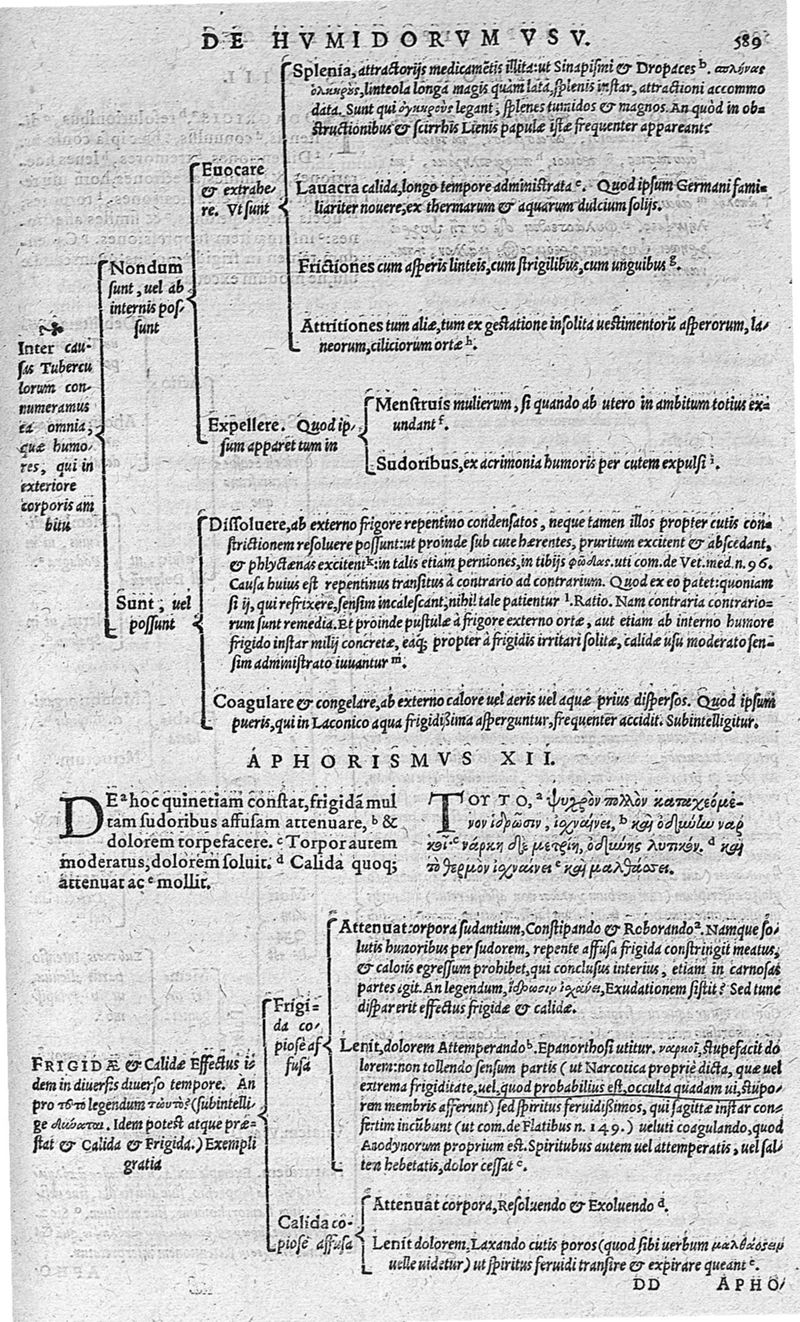 DE HVMIDORVM VSV. 589
Inter cau-
sas Tubercu
lorum con-
numeramus
ea omnia,
quæ humo-
res, qui in
exteriore
corporis am
bitu
Nondum
sunt, uel ab
internis pos-
sunt
Euocare
& extrahe-
re. Vt sunt
Splenia, attractorijs medicamētis illita: ut Sinapismi & Dropaces b. σπλῆνας
ὀγκηρούς, linteola longa magis quàm lata, splenis instar, attractioni accommo
data. Sunt qui ὀγκηρούς legant, splenes tumidos & magnos. An quòd in ob-
structionibus & scirrhis Lienis papulæ istæ frequenter appareant?
Lauacra calida, longo tempore administrata e. Quod ipsum Germani fami-
liariter nouere, ex thermarum & aquarum dulcium solijs.
Frictiones cum asperis linteis, cum strigilibus, cum unguibus g.
Attritiones tum aliæ, tum ex gestatione insolita uestimentorū asperorum, la-
neorum, ciliciorum ortæ h.
Expellere. Quod ip-
sum apparet tum in
Menstruis mulierum, si quando ab utero in ambitum totius ex-
undant f.
Sudoribus, ex acrimonia humoris per cutem expulsi i.
Sunt, uel
possunt
Dissoluere, ab externo frigore repentino condensatos, neque tamen illos propter cutis con-
strictionem resoluere possunt: ut proinde sub cute hærentes, pruritum excitent & abscedant,
& phlyctænas excitent k: in talis etiam perniones, in tibijs φῶδας. uti com. de Vet. med. n. 96.
Causa huius est repentinus transitus à contrario ad contrarium. Quod ex eo patet: quoniam
si ij, qui refrixere, sensim incalescant, nihil tale patientur l. Ratio. Nam contraria contrario-
rum sunt remedia. Et proinde pustulæ à frigore externo ortæ, aut etiam ab interno humore
frigido instar milij concretæ, eaq; propter à frigidis irritari solitæ, calidæ usu moderato sen-
sim administrato iuuantur m.
Coagulare & congelare, ab externo calore uel aeris uel aquæ prius dispersos. Quod ipsum
pueris, qui in Laconico aqua frigidißima asperguntur, frequenter accidit. Subintelligitur.
APHORISMVS XII.
DE a hoc quinetiam constat, frigidā mul
tam sudoribus affusam attenuare, b &
dolorem torpefacere. c Torpor autem
moderatus, dolorem soluit. d Calida quoq;
attenuat ac e mollit.
ΤΟΥΤΟ, a ψυχρὸν πολλὸν καταχεόμε-
νον ἱδρῶσιν, ἰσχναίνει, b καὶ ὀδύνην ναρ
κοῖ. c νάρκη δὲ μετρίη, ὀδύνης λυτικόν. d καὶ
τὸ θερμὸν ἰσχναίνει e καὶ μαλθάσσει.
FRIGIDÆ & Calidæ Effectus i-
dem in diuersis diuerso tempore. An
pro τοῦτο legendum τωὐτό? (subintelli-
ge δύναται. Idem potest atque præ-
stat & Calida & Frigida.) Exempli
gratia
Frigi-
da co-
piosè af
fusa
Attenuat corpora sudantium, Constipando & Roborando a. Namque so-
lutis humoribus per sudorem, repente affusa frigida constringit meatus,
& caloris egressum prohibet, qui conclusus interius, etiam in carnosas
partes igit. An legendum, ἱδρῶσιν ἰσχάνει, Exudationem sistit? Sed tunc
disparerit effectus frigidæ & calidæ.
Lenit, dolorem Attemperando b. Epanorthosi utitur. ναρκοῖ, stupefacit do
lorem: non tollendo sensum partis (ut Narcotica propriè dicta, quæ uel
extrema frigiditate, uel, quod probabilius est, occulta quadam ui, stupo-
rem membris afferunt) sed spiritus feruidißimos, qui sagittæ instar con-
fertim incūbunt (ut com. de Flatibus n. 149.) ueluti coagulando, quod
Anodynorum proprium est. Spiritubus autem uel attemperatis, uel sal-
tem hebetatis, dolor cessat c.
Calida co-
piosè affusa
Attenuat corpora, Resoluendo & Exoluendo d.
Lenit dolorem. Laxando cutis poros (quod sibi uerbum μαλθάσσειν
uelle uidetur) ut spiritus feruidi transire & expirare queant e.
DD APHO-